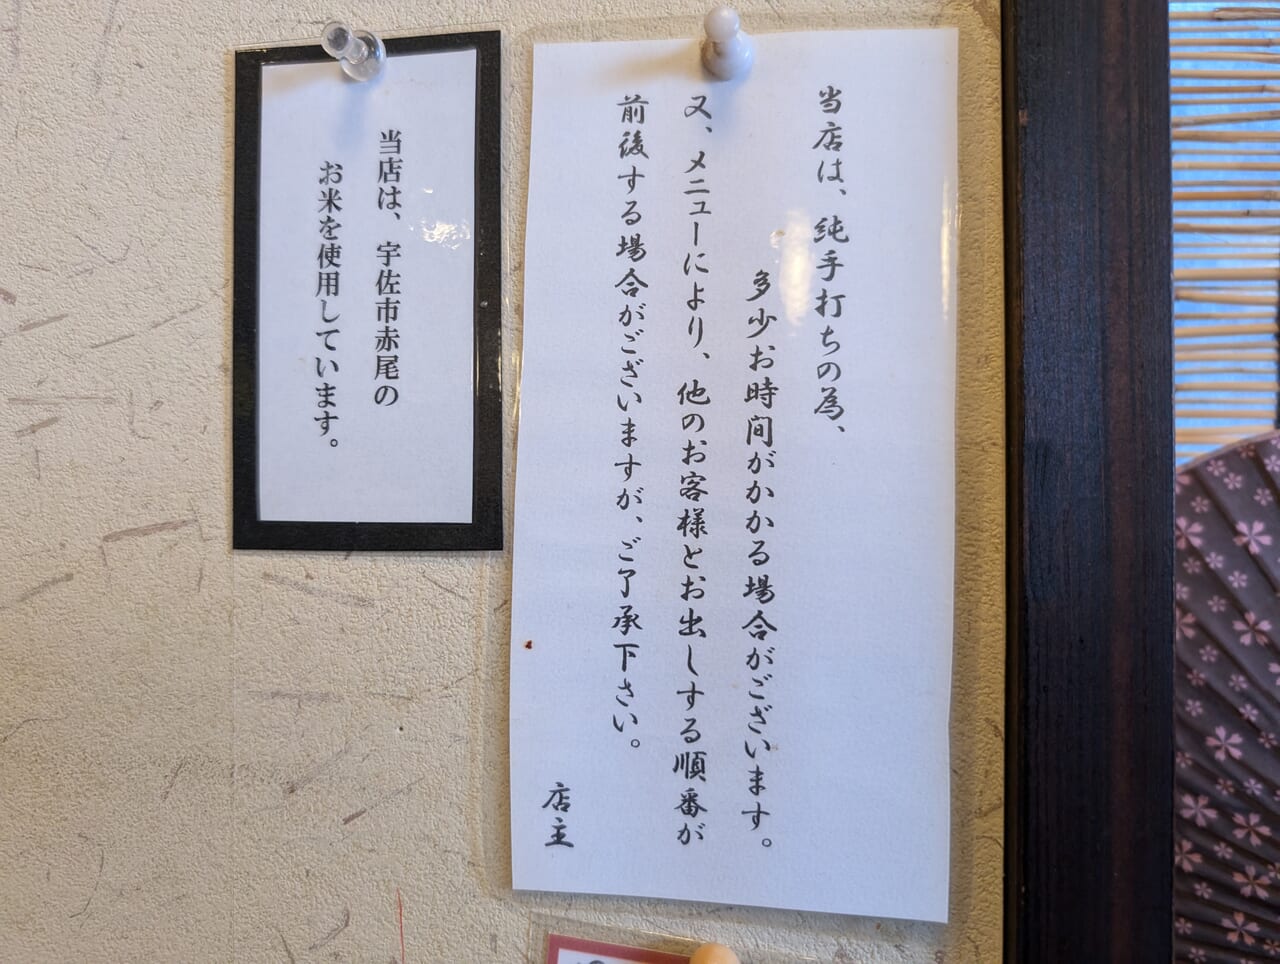 当店は、純手打ちの為、
多少お時間がかかる場合がございます。
又、メニューにより、他のお客様とお出しする順番が
前後する場合がございますが、ご了承下さい。
店主
当店は、宇佐市赤尾の
お米を使用しています。